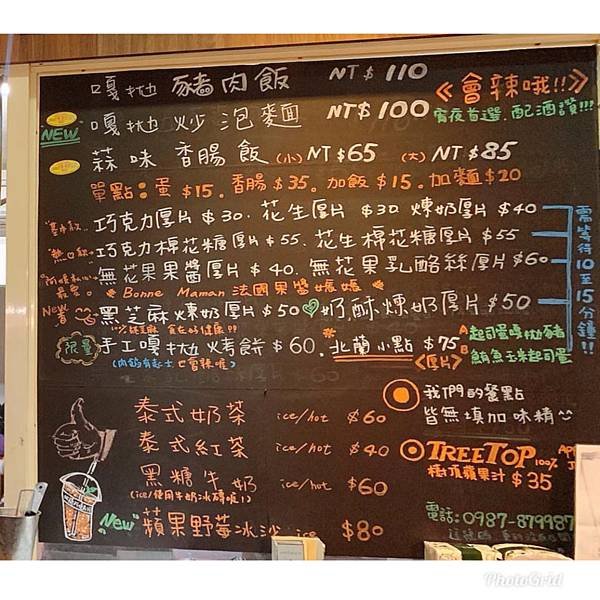 嘎抛 豬肉飯 NT$110
《會辣哦!!》
NEW 嘎抛 炒泡麵 NT$100
宵夜首選 配酒讚!!!
蒜味香腸飯(小)NT$65 (大)NT$85
單點:蛋$15.香腸$35.加飯$15.加麵$20
巧克力厚片$30.花生厚片$30 煉奶厚片$40
巧克力棉花糖厚片$55.花生棉花糖厚片$55
無花果果醬厚片$40.無花果乳酪絲厚片$60
最愛。Bonne Maman 法國果醬媽媽
需等待10至15分鐘!!
New 黑芝麻煉奶厚片$50 奶酥煉奶厚片$50
限量 手工嘎抛烤餅$60.北蘭小點$75
(肉餡有起士 也會辣喔)
<厚片>
A 起司蛋嘎抛豬
B 鮪魚玉米起司蛋
我們的餐點
皆無填加味精
泰式奶茶 ice/hot $60
泰式紅茶 ice/hot $40
黑糖牛奶 ice/hot $60
(ice/使用牛奶冰磚喔!)
New 蘋果野莓冰沙 ice $80
TREETOP 100%
樹頂蘋果汁$35
電話:0987-879987
PhotoGrid